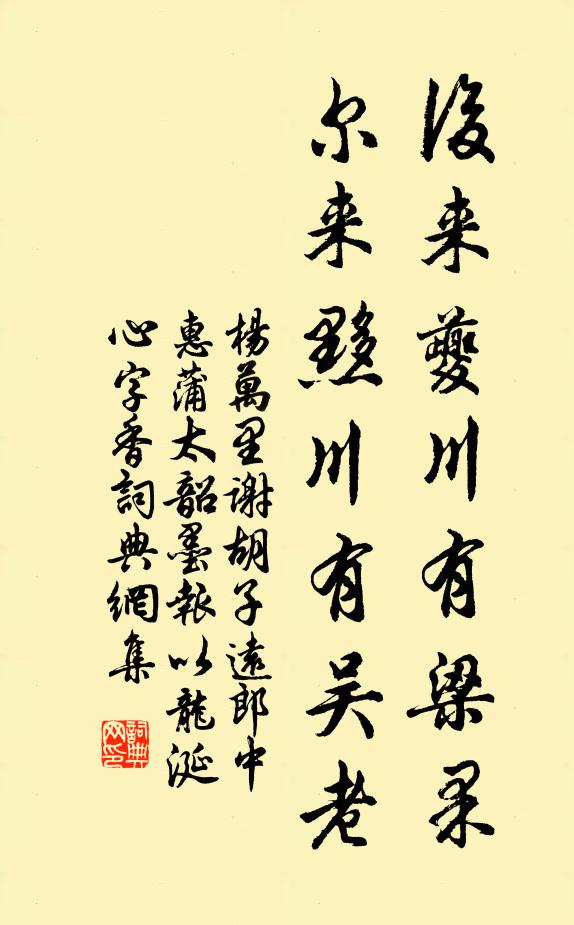 後来夔川有梁杲
尔来黟川有吴老
楊萬里謝胡子遠郎中
惠蒲太韶墨報以龍涎
心字香詞典網集
詞典
网印